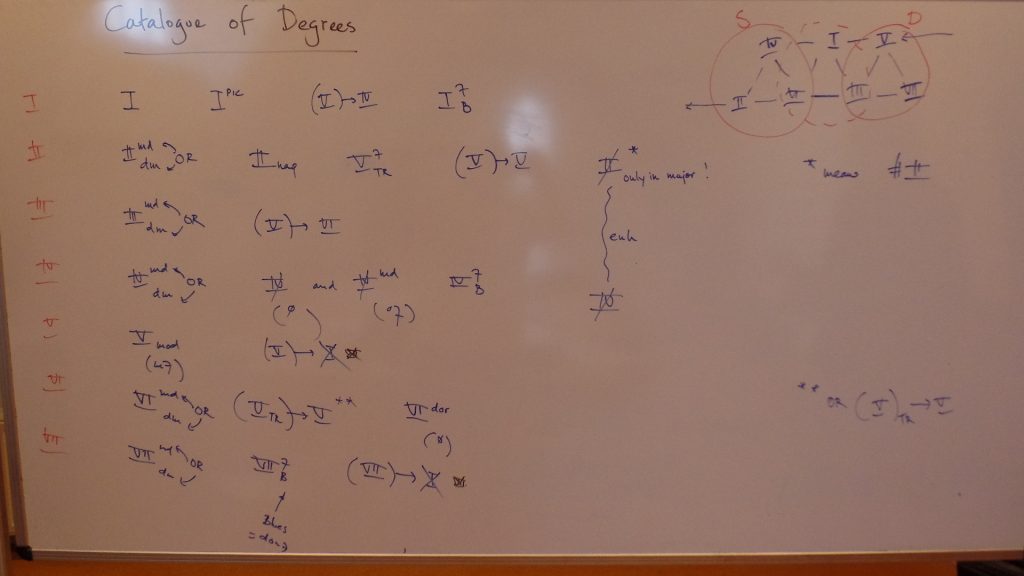 Catalogue of Degrees
S D
IV – I – V
II – VI – III – VII
I I I PIC (V) → IV I 7 B
II II md dm OR II nap V 7 TR (V) → V II * only in major ! * means # II
III III md dm OR (V) → VI
enh
IV IV md dm OR IV and IV md IV 7 B IV
(ø) (o7)
V V mod (V) → V
(m7)
VI VI md dm OR (V TR) → V ** VI dor ** OR (V) TR → V
(ø)
VII VII md dm OR VII 7 B (VII) → I
Blues
= dom 7